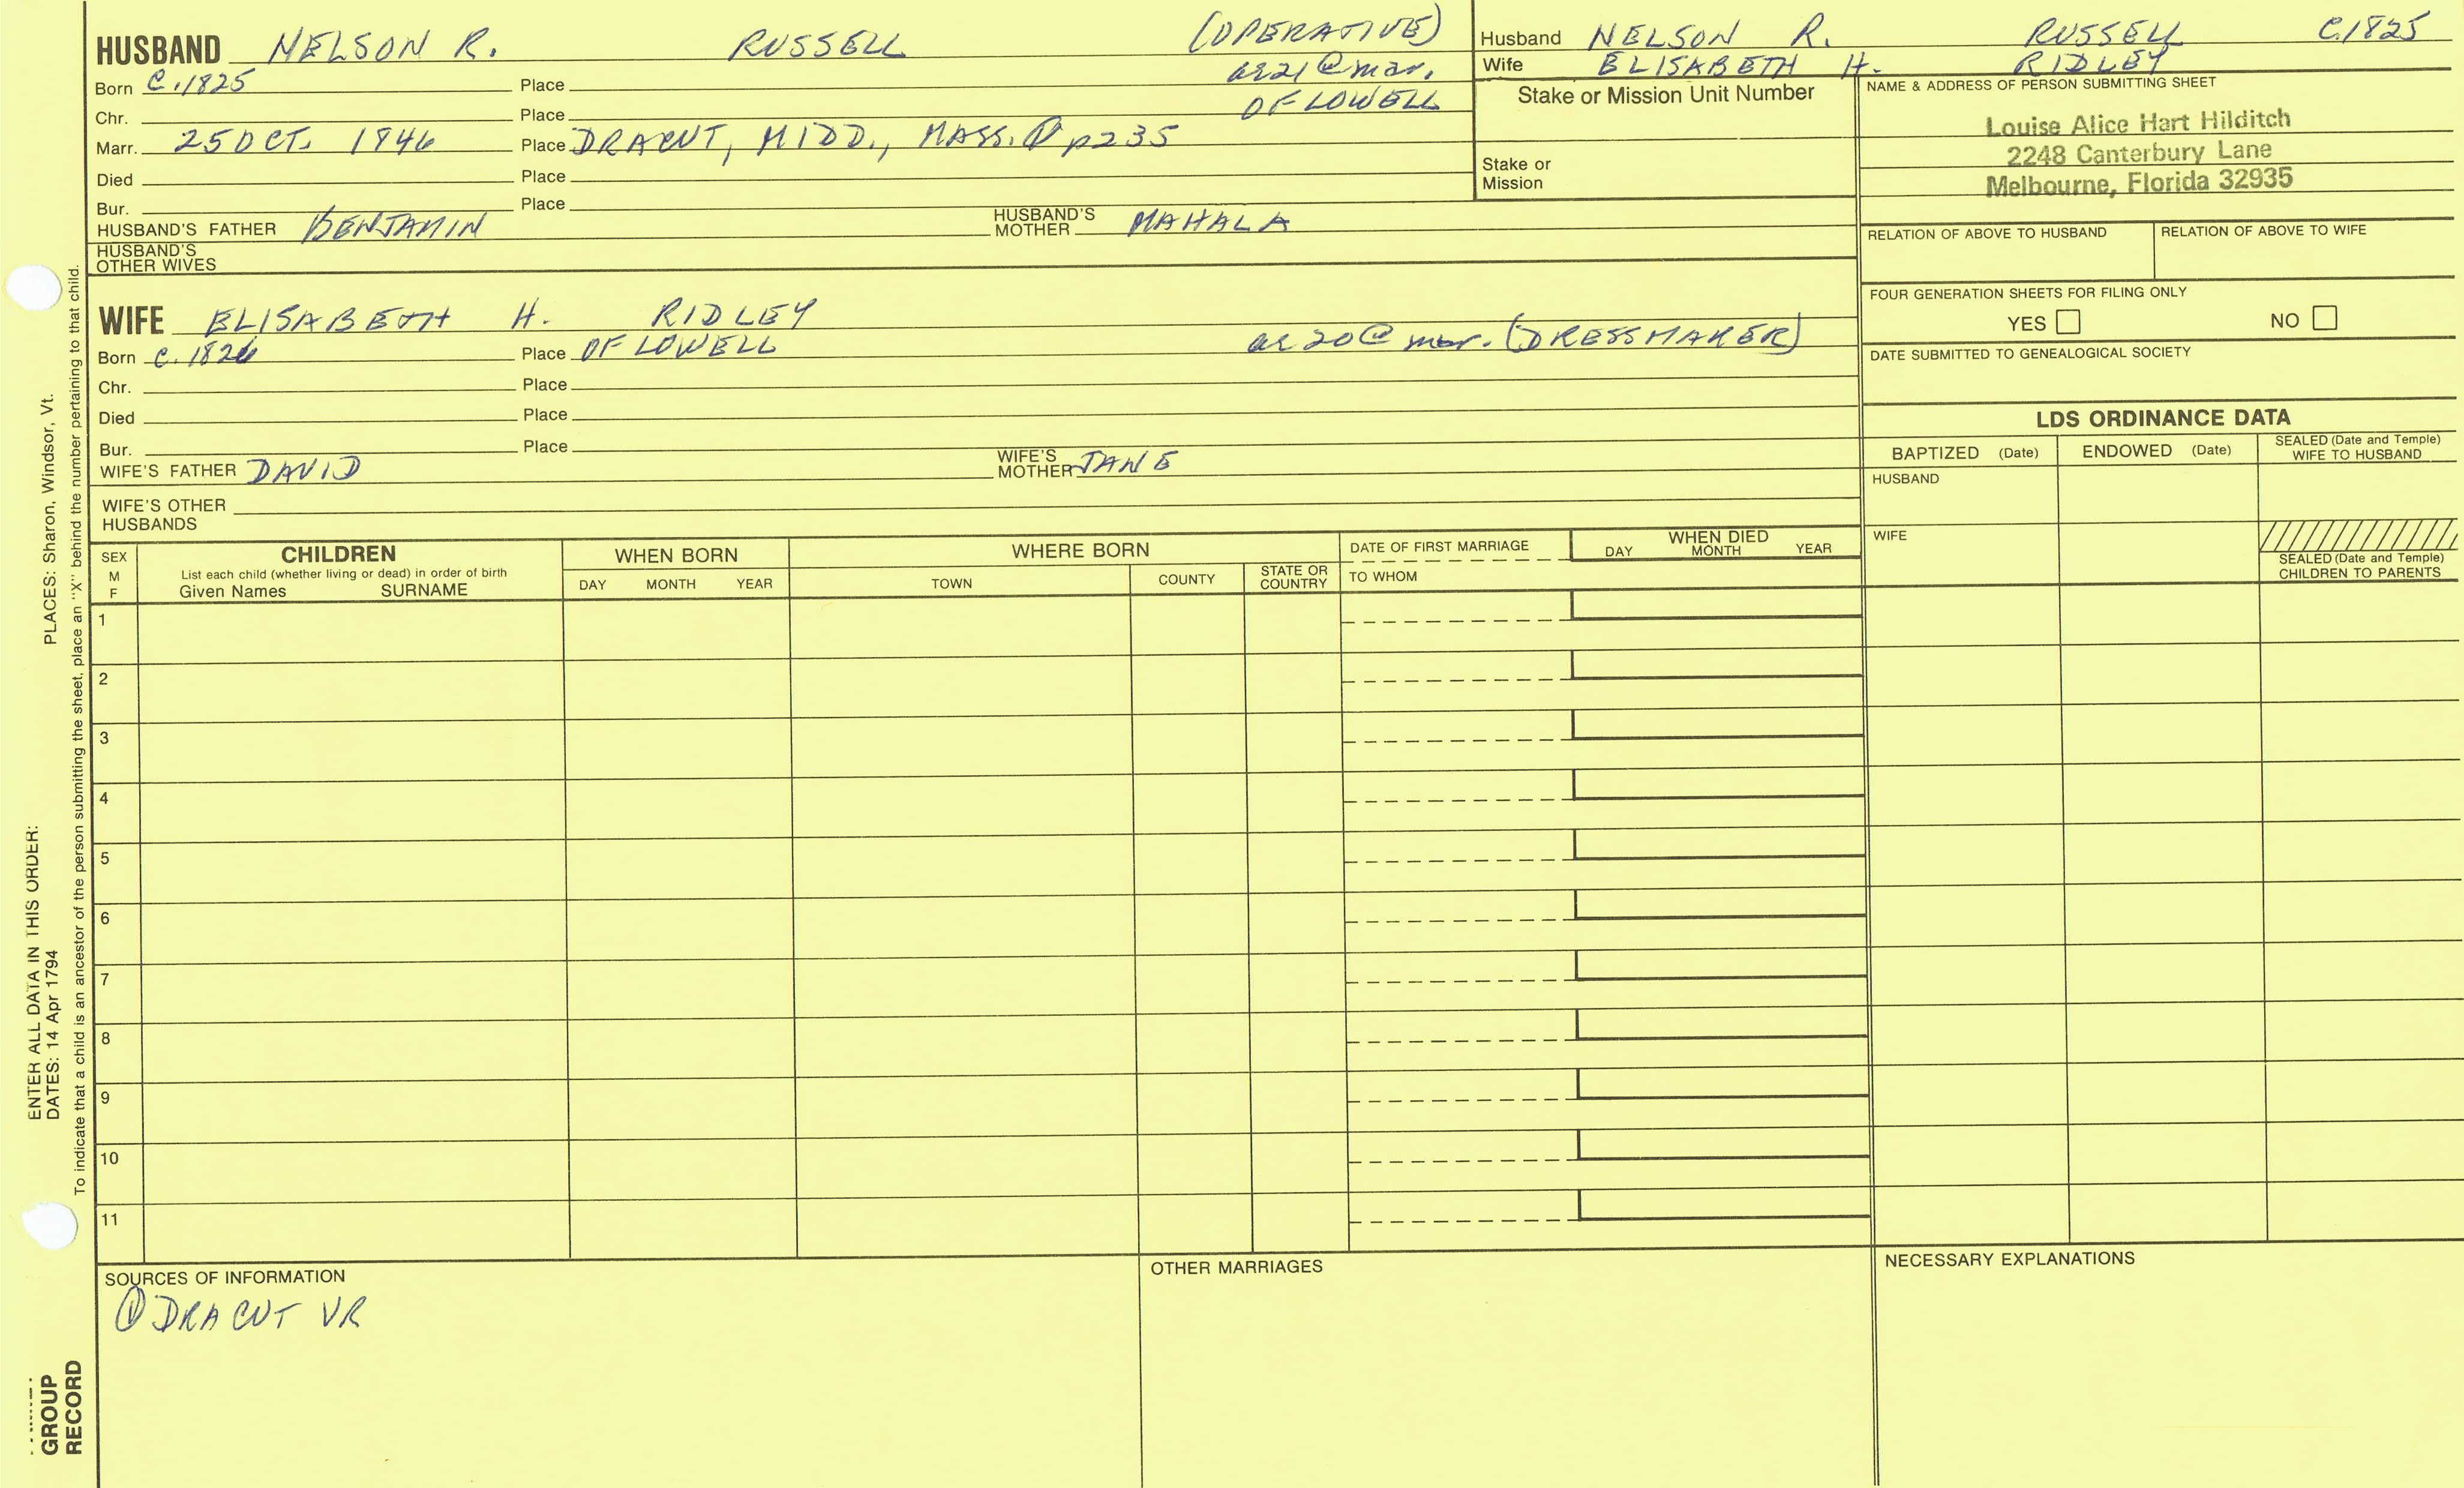 HUSBAND NELSON R. RUSSELL (OPERATIVE)
Born C.1825 Place ae 21 @ mar.
Chr. Place OF LOWELL
Marr. 25 OCT. 1846 Place DRACUT, MIDD., MASS. ① p235
Died Place
Bur. Place
HUSBAND'S FATHER BENJAMIN HUSBAND'S MOTHER MAHALA
HUSBAND'S OTHER WIVES
WIFE ELISABETH H. RIDLEY
Born C.1826 Place OF LOWELL ae 20 @ mar. (DRESSMAKER)
Chr. Place
Died Place
Bur. Place
WIFE'S FATHER DAVID WIFE'S MOTHER JANE
WIFE'S OTHER HUSBANDS
Husband NELSON R. RUSSELL C.1825
Wife ELISABETH H. RIDLEY
Stake or Mission Unit Number
Stake or
Mission
NAME & ADDRESS OF PERSON SUBMITTING SHEET
Louise Alice Hart Hilditch
2248 Canterbury Lane
Melbourne, Florida 32935
RELATION OF ABOVE TO HUSBAND RELATION OF ABOVE TO WIFE
FOUR GENERATION SHEETS FOR FILING ONLY
YES NO
DATE SUBMITTED TO GENEALOGICAL SOCIETY
LDS ORDINANCE DATA
BAPTIZED (Date) ENDOWED (Date) SEALED (Date and Temple) WIFE TO HUSBAND
HUSBAND
WIFE
SEALED (Date and Temple) CHILDREN TO PARENTS
SEX M F
CHILDREN
List each child (whether living or dead) in order of birth
Given Names SURNAME
WHEN BORN
DAY MONTH YEAR
WHERE BORN
TOWN COUNTY STATE OR COUNTRY
DATE OF FIRST MARRIAGE
TO WHOM
WHEN DIED
DAY MONTH YEAR
1
2
3
4
5
6
7
8
9
10
11
SOURCES OF INFORMATION
① DRACUT VR
OTHER MARRIAGES
NECESSARY EXPLANATIONS
ENTER ALL DATA IN THIS ORDER:
DATES: 14 Apr 1794 PLACES: Sharon, Windsor, Vt.
To indicate that a child is an ancestor of the person submitting the sheet, place an "X" behind the number pertaining to that child.
GROUP
RECORD